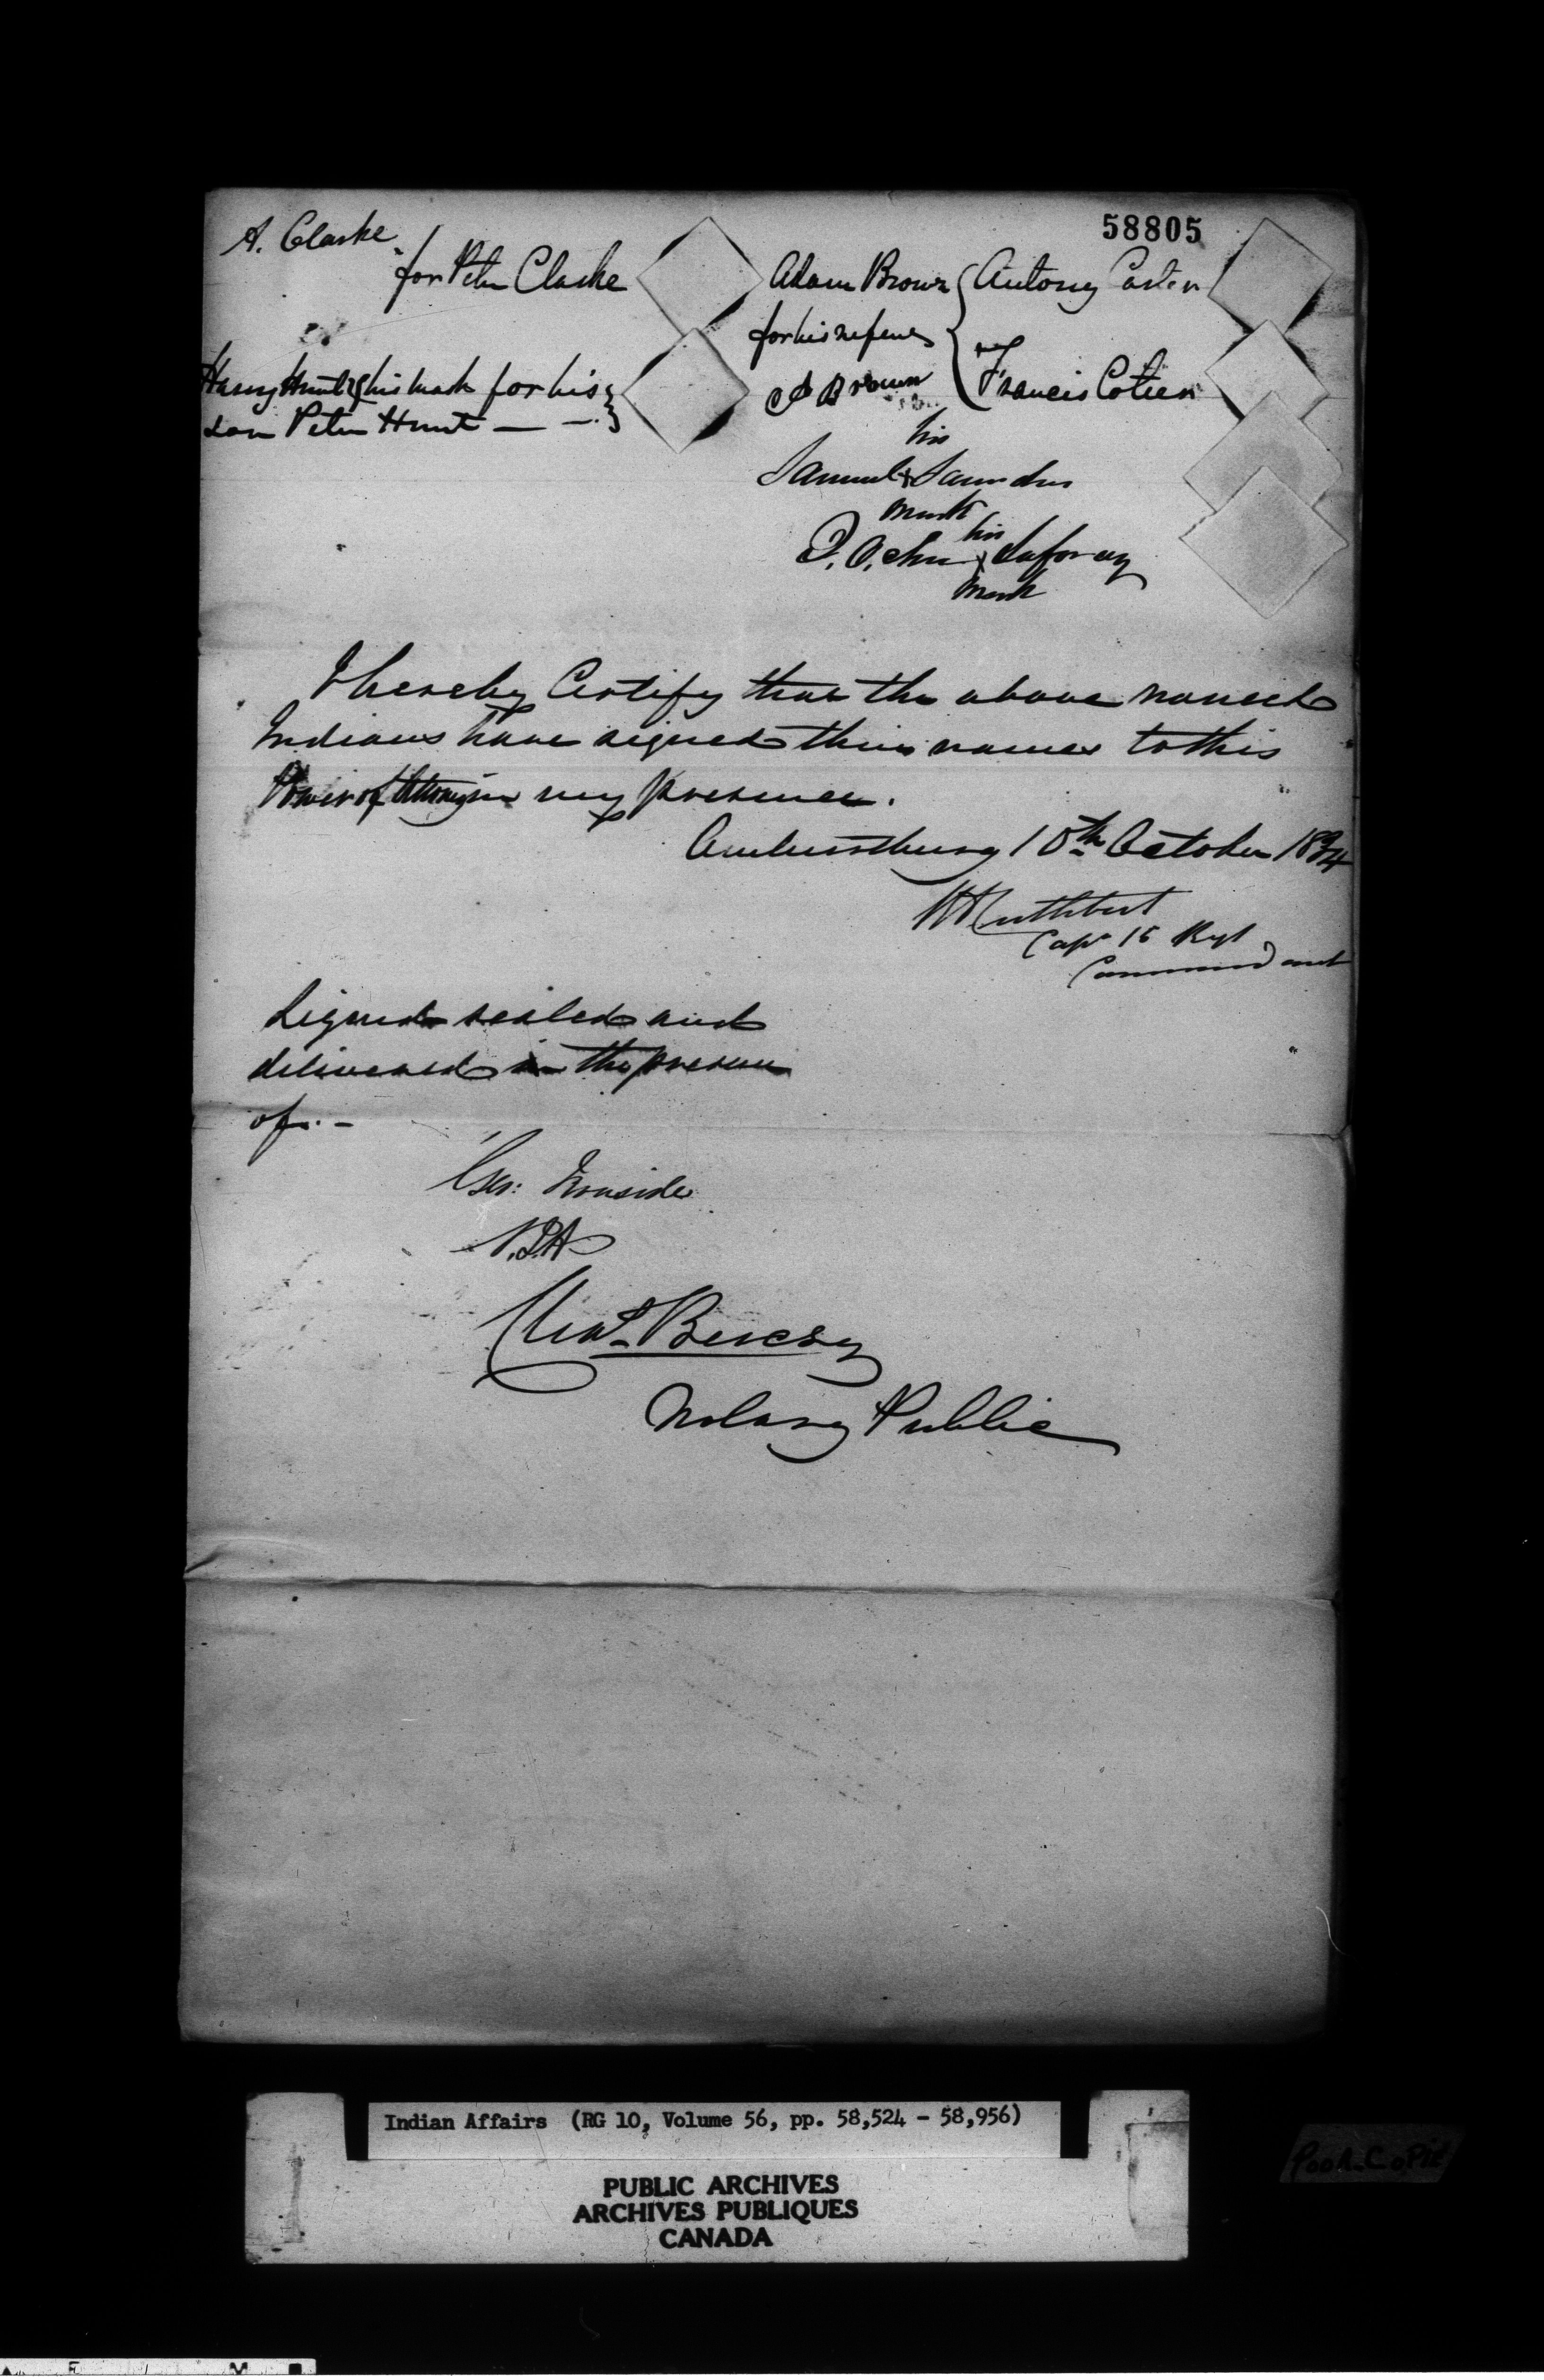 58805
A. Clarke
for Peter Clarke
Adam Brown
Antony
for his nefews
A Brown
Francis Cotien
Harry Hunt his mark for his
son Peter Hunt — —
his
Samuel x Saunders
mark
his
x Laforay
mark
I hereby Certify that the above named
Indians have signed their names to this
Power of Attorney in my presence.
Amherstburg 10th October 1834
Cuthbert
Capt 15 Regt
Commandant
Signed sealed and
delivered in the presence
of. -
Geo: Ironside
Chas. Berczy
Notary Public
Indian Affairs (RG 10, Volume 56, pp. 58,524 - 58,956)
PUBLIC ARCHIVES
ARCHIVES PUBLIQUES
CANADA
Poor Copie